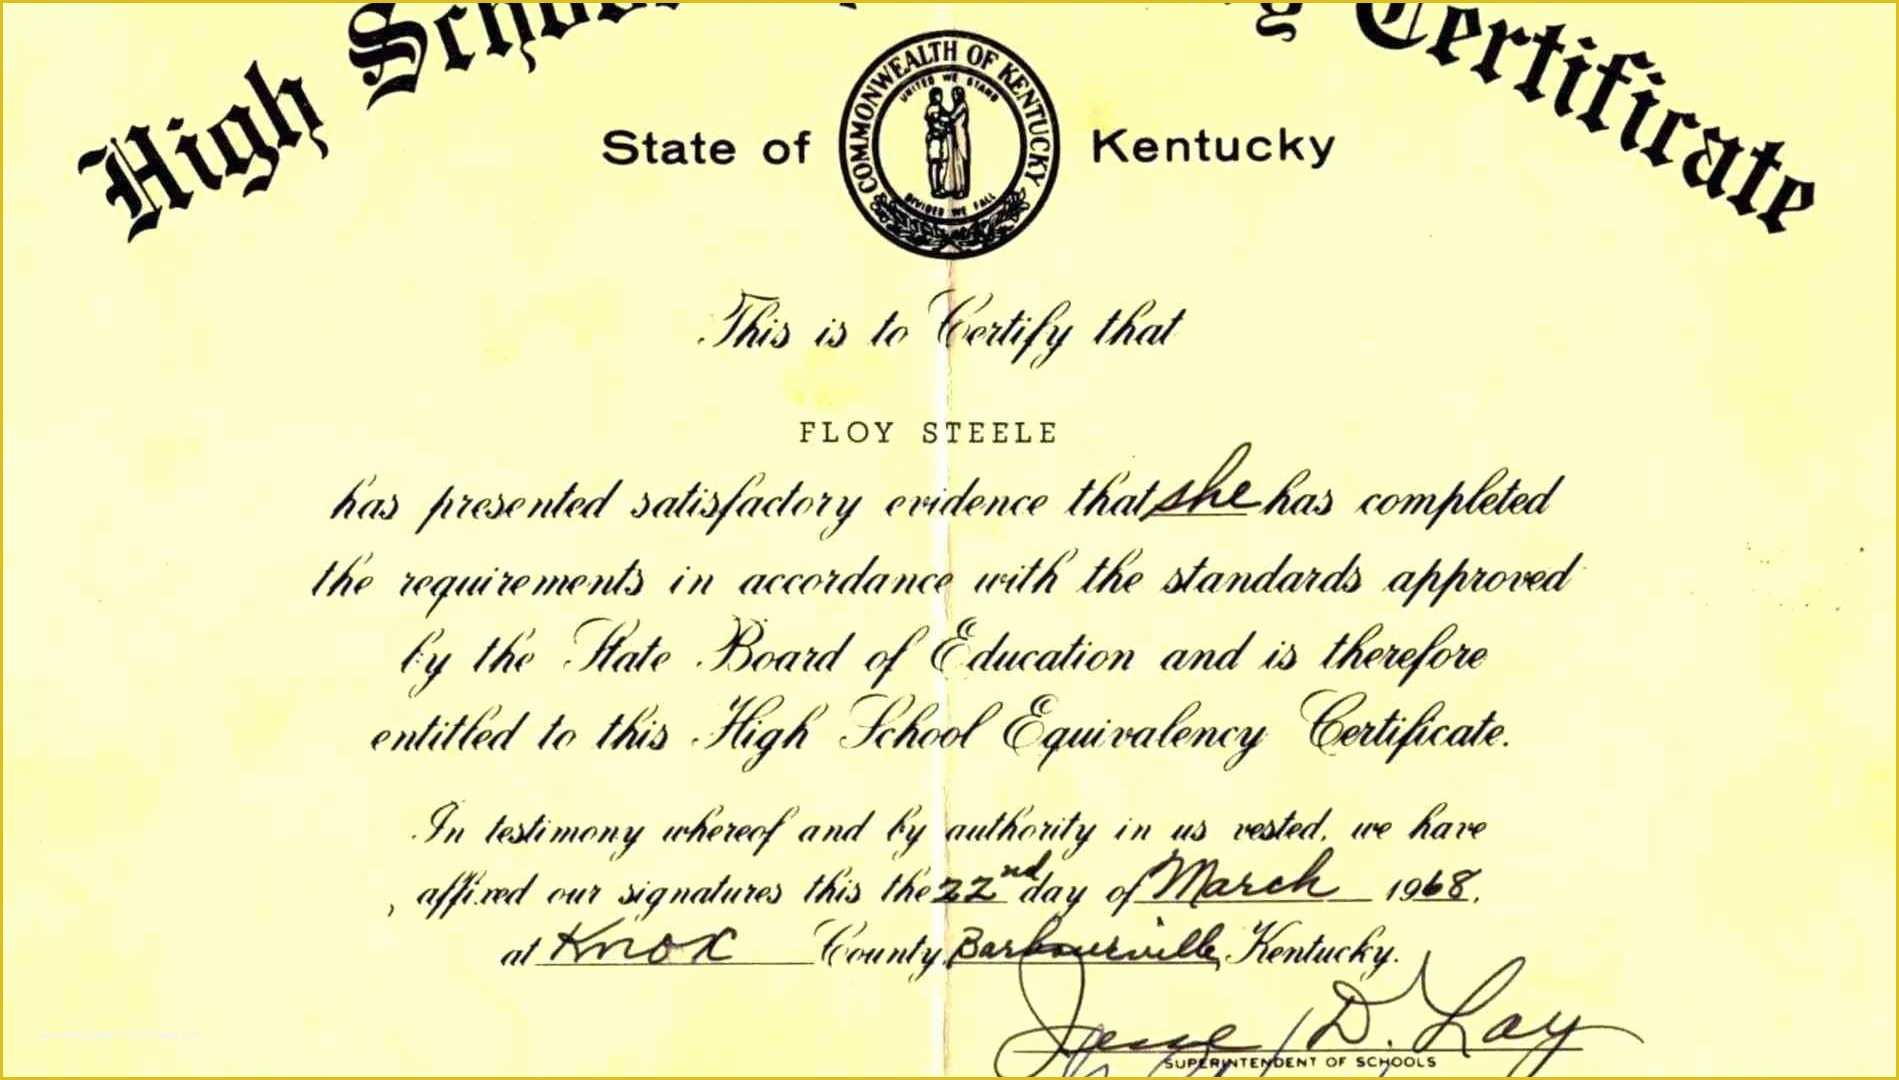 High School Certificate
COMMONWEALTH OF KENTUCKY
UNITED WE STAND
DIVIDED WE FALL
State of Kentucky
This is to Certify that
FLOY STEELE
has presented satisfactory evidence that she has completed
the requirements in accordance with the standards approved
by the State Board of Education and is therefore
entitled to this High School Equivalency Certificate.
In testimony whereof and by authority in us vested, we have
affixed our signatures this the 22nd day of March 1968.
at Knox County, Barbourville, Kentucky.
Jesse D. Lay
SUPERINTENDENT OF SCHOOLS